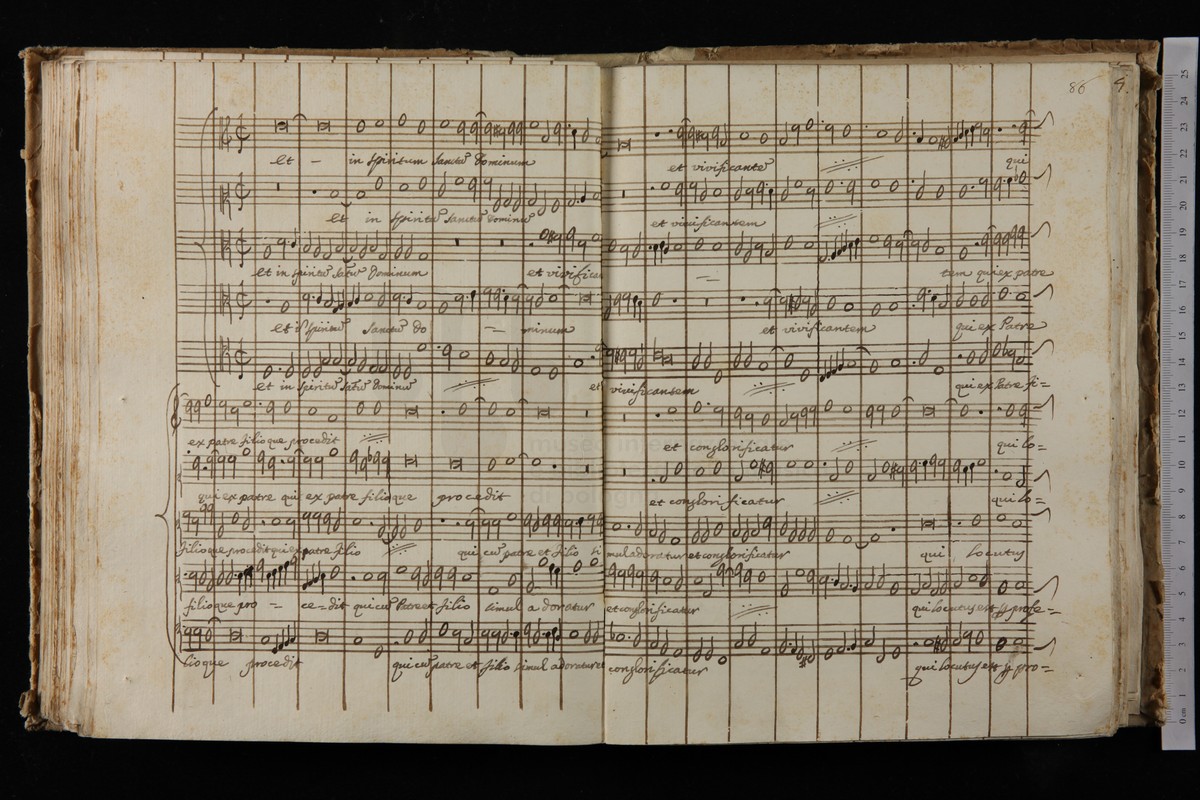 86
Et - in spiritum Sanctũ Dominum et vivificantẽ qui
Et in spiritũ Sanctũ Dominũ et vivificantem
Et in spiritũ Sãtũ Dominum et vivifican tem qui ex patre
Et ĩ spiritũ Sanctũ Do - minum et vivificantem qui ex Patre
Et in spiritũ Sãtũ Dominũ et vivificantem qui ex Patre fi=
ex patre filioque procedit et conglorificatur qui lo=
qui ex patre qui ex patre filioque procedit et conglorificatur qui lo=
filioque procedit qui ex patre filio qui cũ patre et filio si mul adoratur et conglorificatur qui locutus
filioque pro = ce=dit qui cũ Patre et filio simul adoratur et conglorificatur qui locutus est profe=
lioque procedit qui cũ patre et filio simul adoratur et conglorificatur qui locutus est pro=